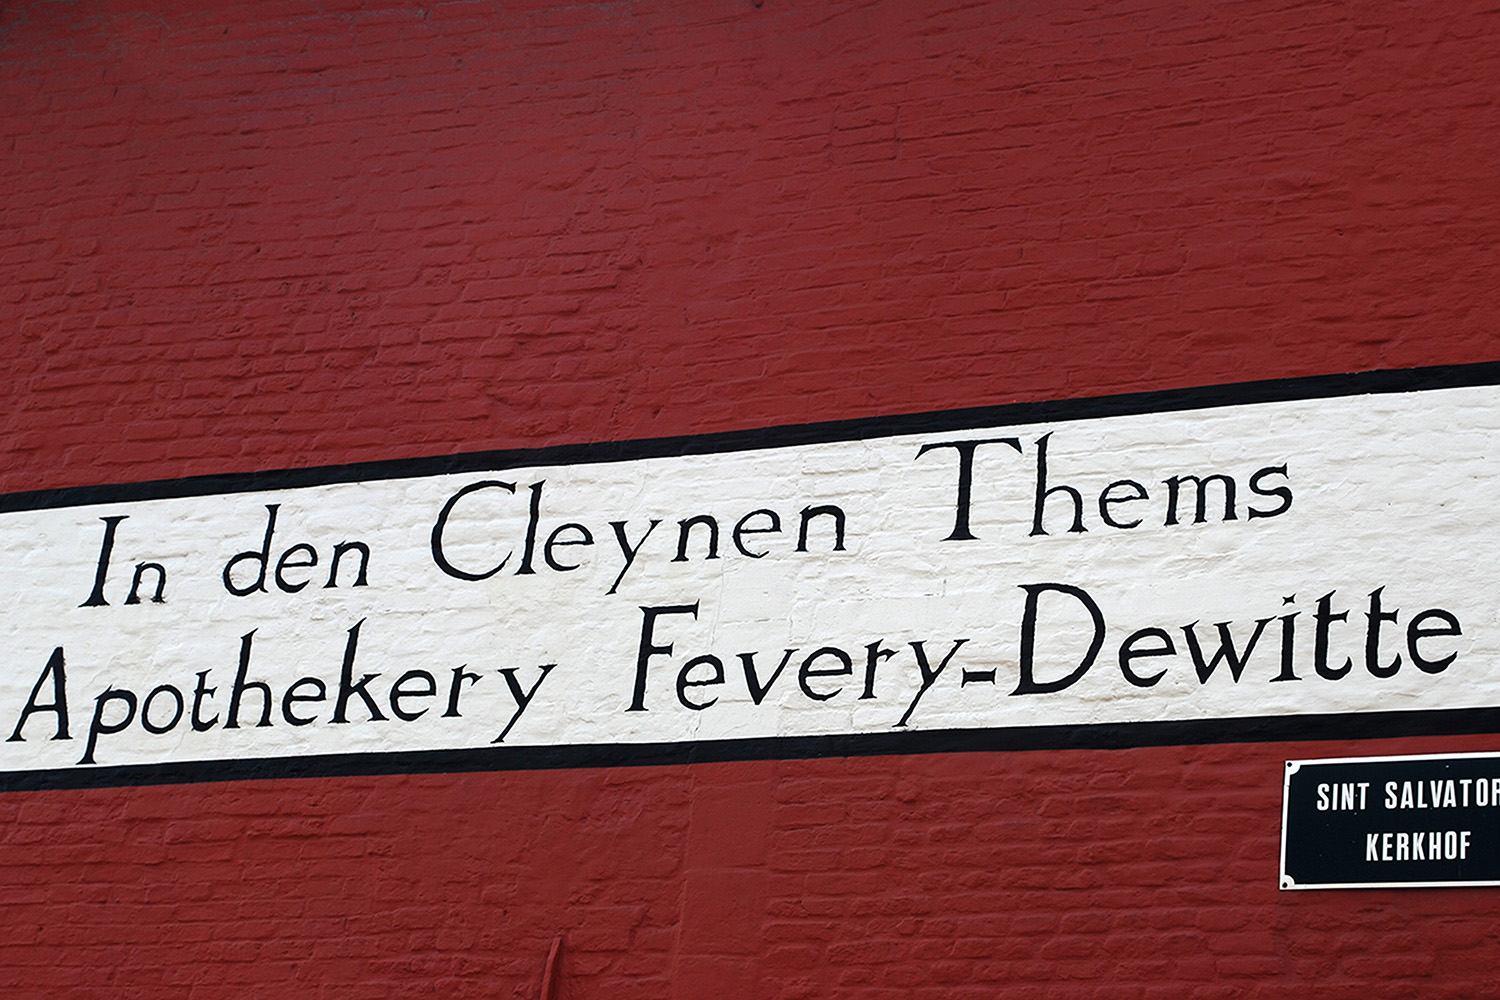 In den Cleynen Thems
Apothekery Fevery-Dewitte
SINT SALVATOR
KERKHOF